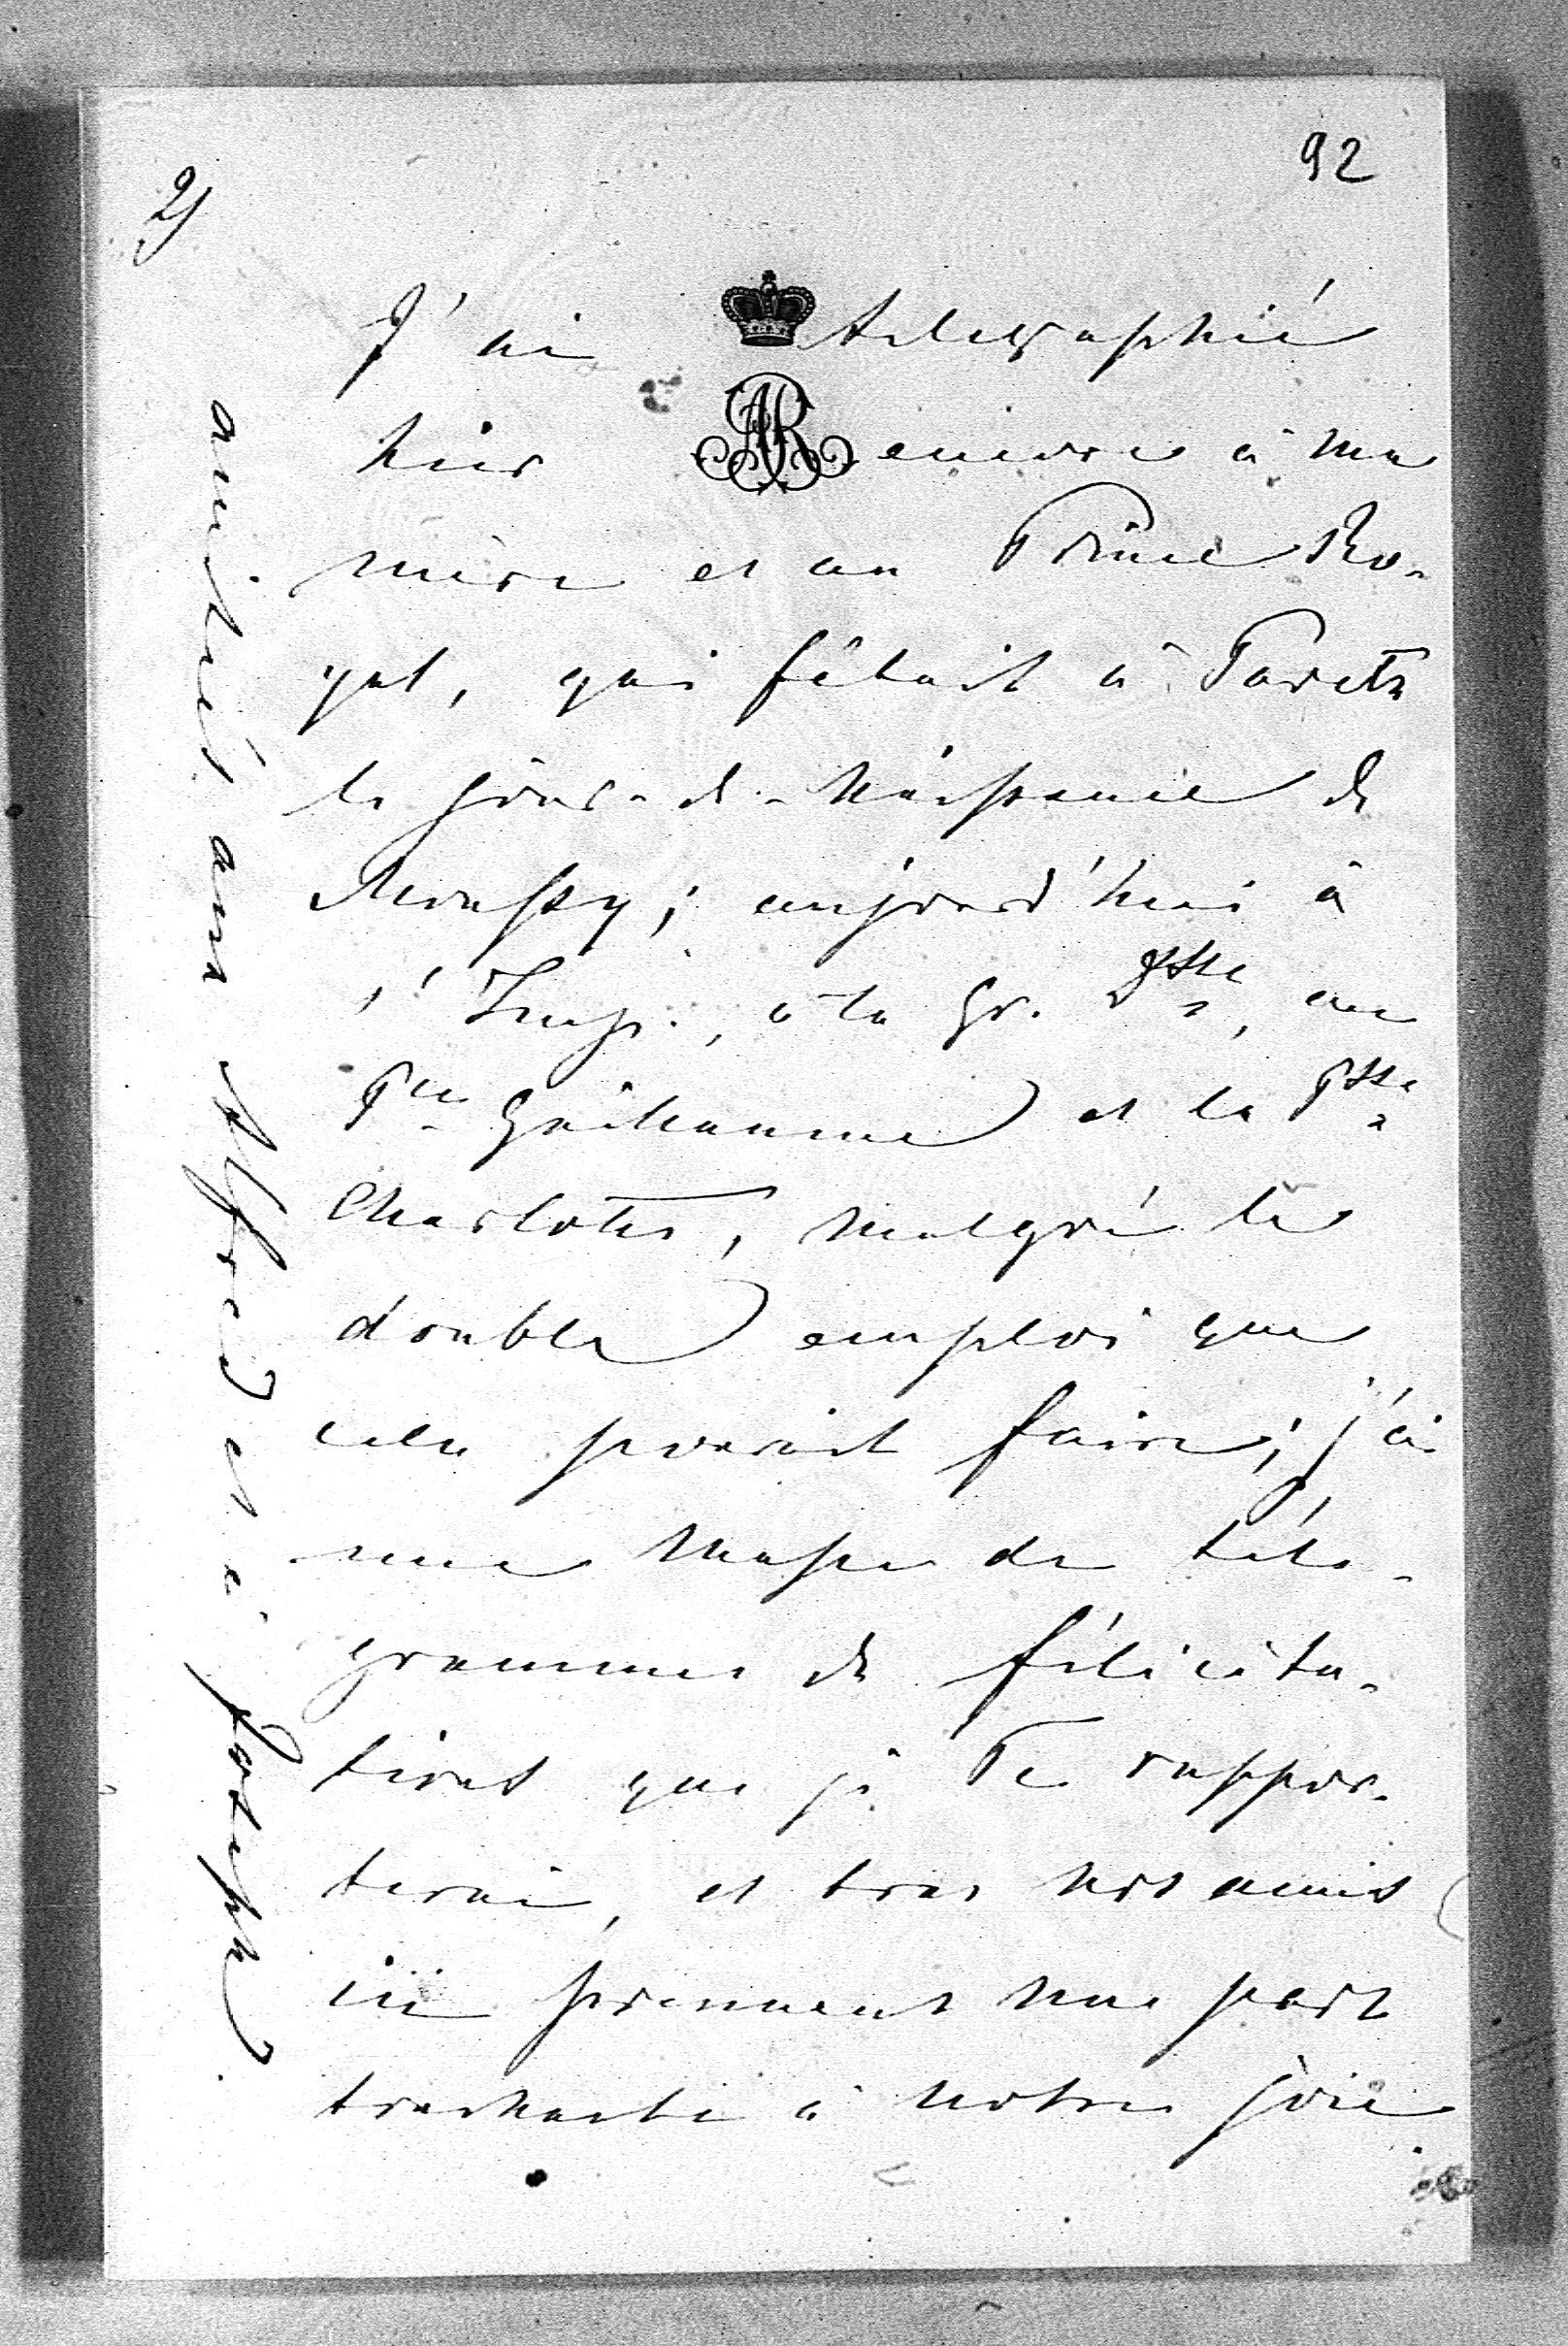 92
2)
J'ai télégraphié
hier encore à ma
mère et au Prince Ro-
yal, qui fêtait à Paretz
le jour-de-naissance de
Moussy; aujourd'hui à
l'Imp., à la Gr. Dsse, au
Pce Guillaume et la Psse
Charlotte, malgré le
double emploi que
cela paraît faire; j'ai
une masse de télé-
grammes de félicita-
tions que je Te rappor-
terai, et tous nos amis
ici prennent une part
touchante à notre joie.
amitiés aux Alfred et à Joseph.
AR